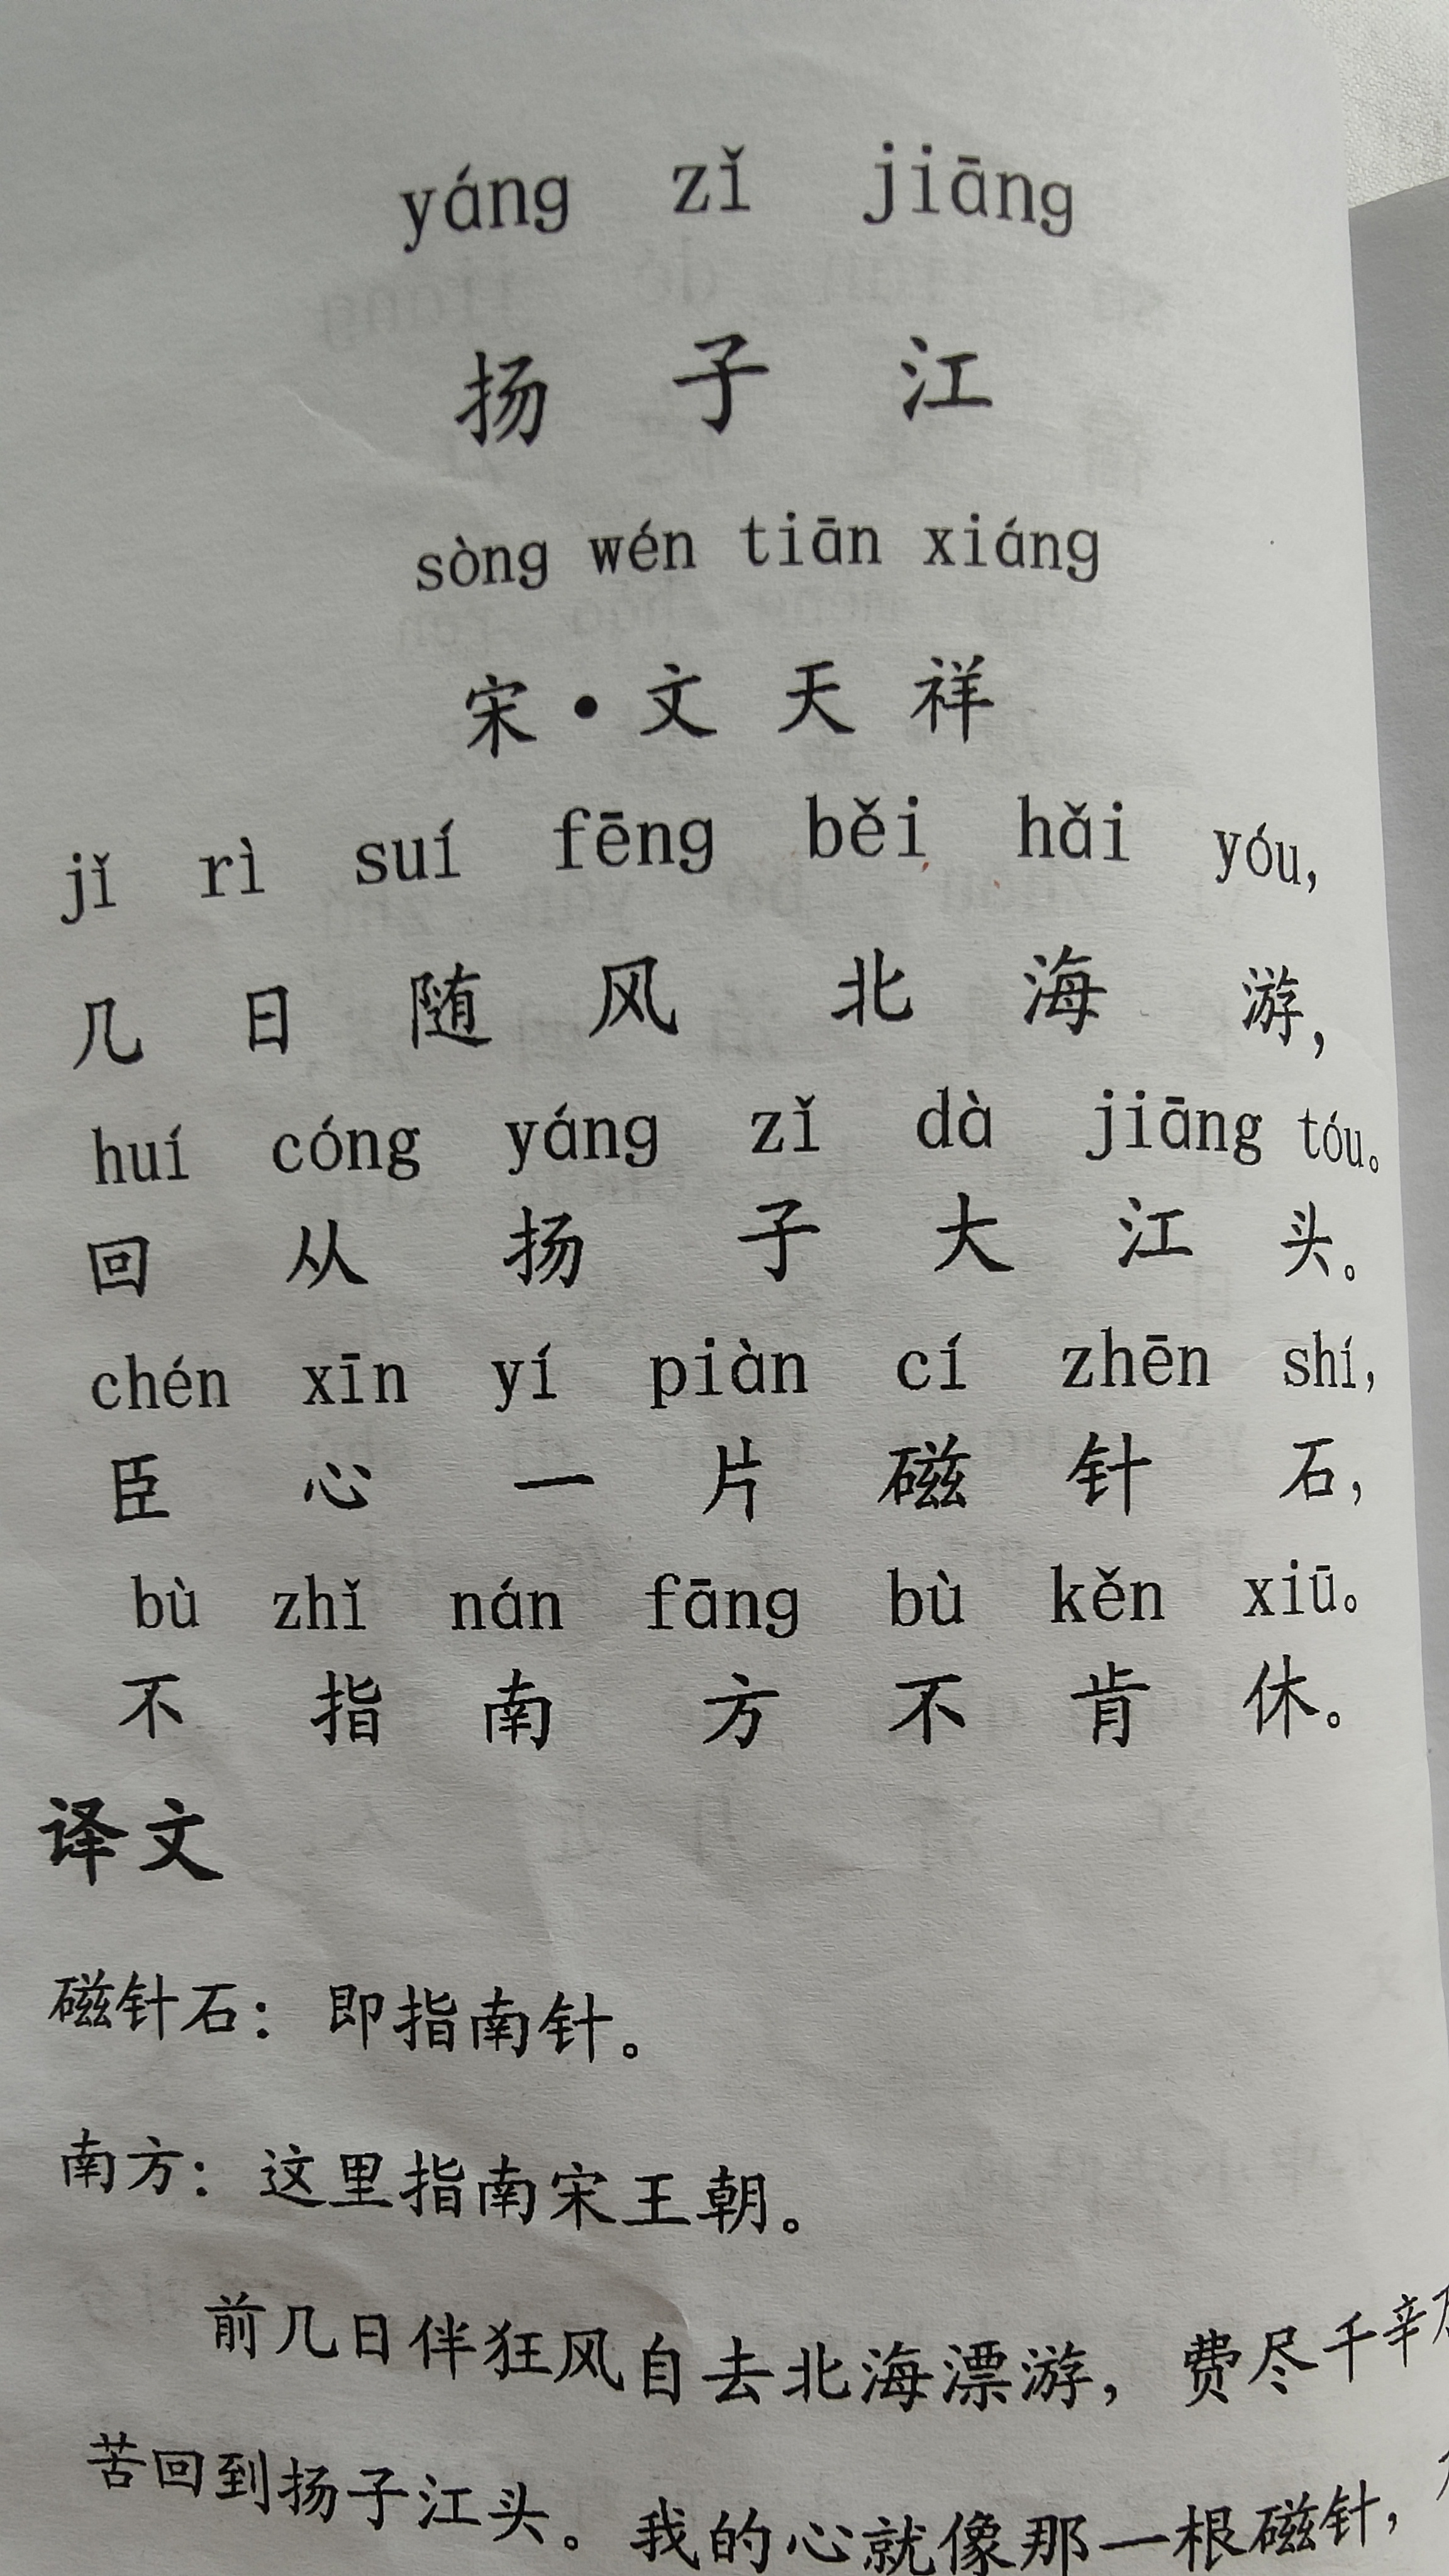 yáng zǐ jiāng
扬子江
sòng wén tiān xiáng
宋·文天祥
jǐ rì suí fēng běi hǎi yóu,
几日随风北海游，
huí cóng yáng zǐ dà jiāng tóu。
回从扬子大江头。
chén xīn yí piàn cí zhēn shí,
臣心一片磁针石，
bù zhǐ nán fāng bù kěn xiū。
不指南方不肯休。
译文
磁针石：即指南针。
南方：这里指南宋王朝。
前几日伴狂风自去北海漂游，费尽千辛
苦回到扬子江头。我的心就像那一根磁针，